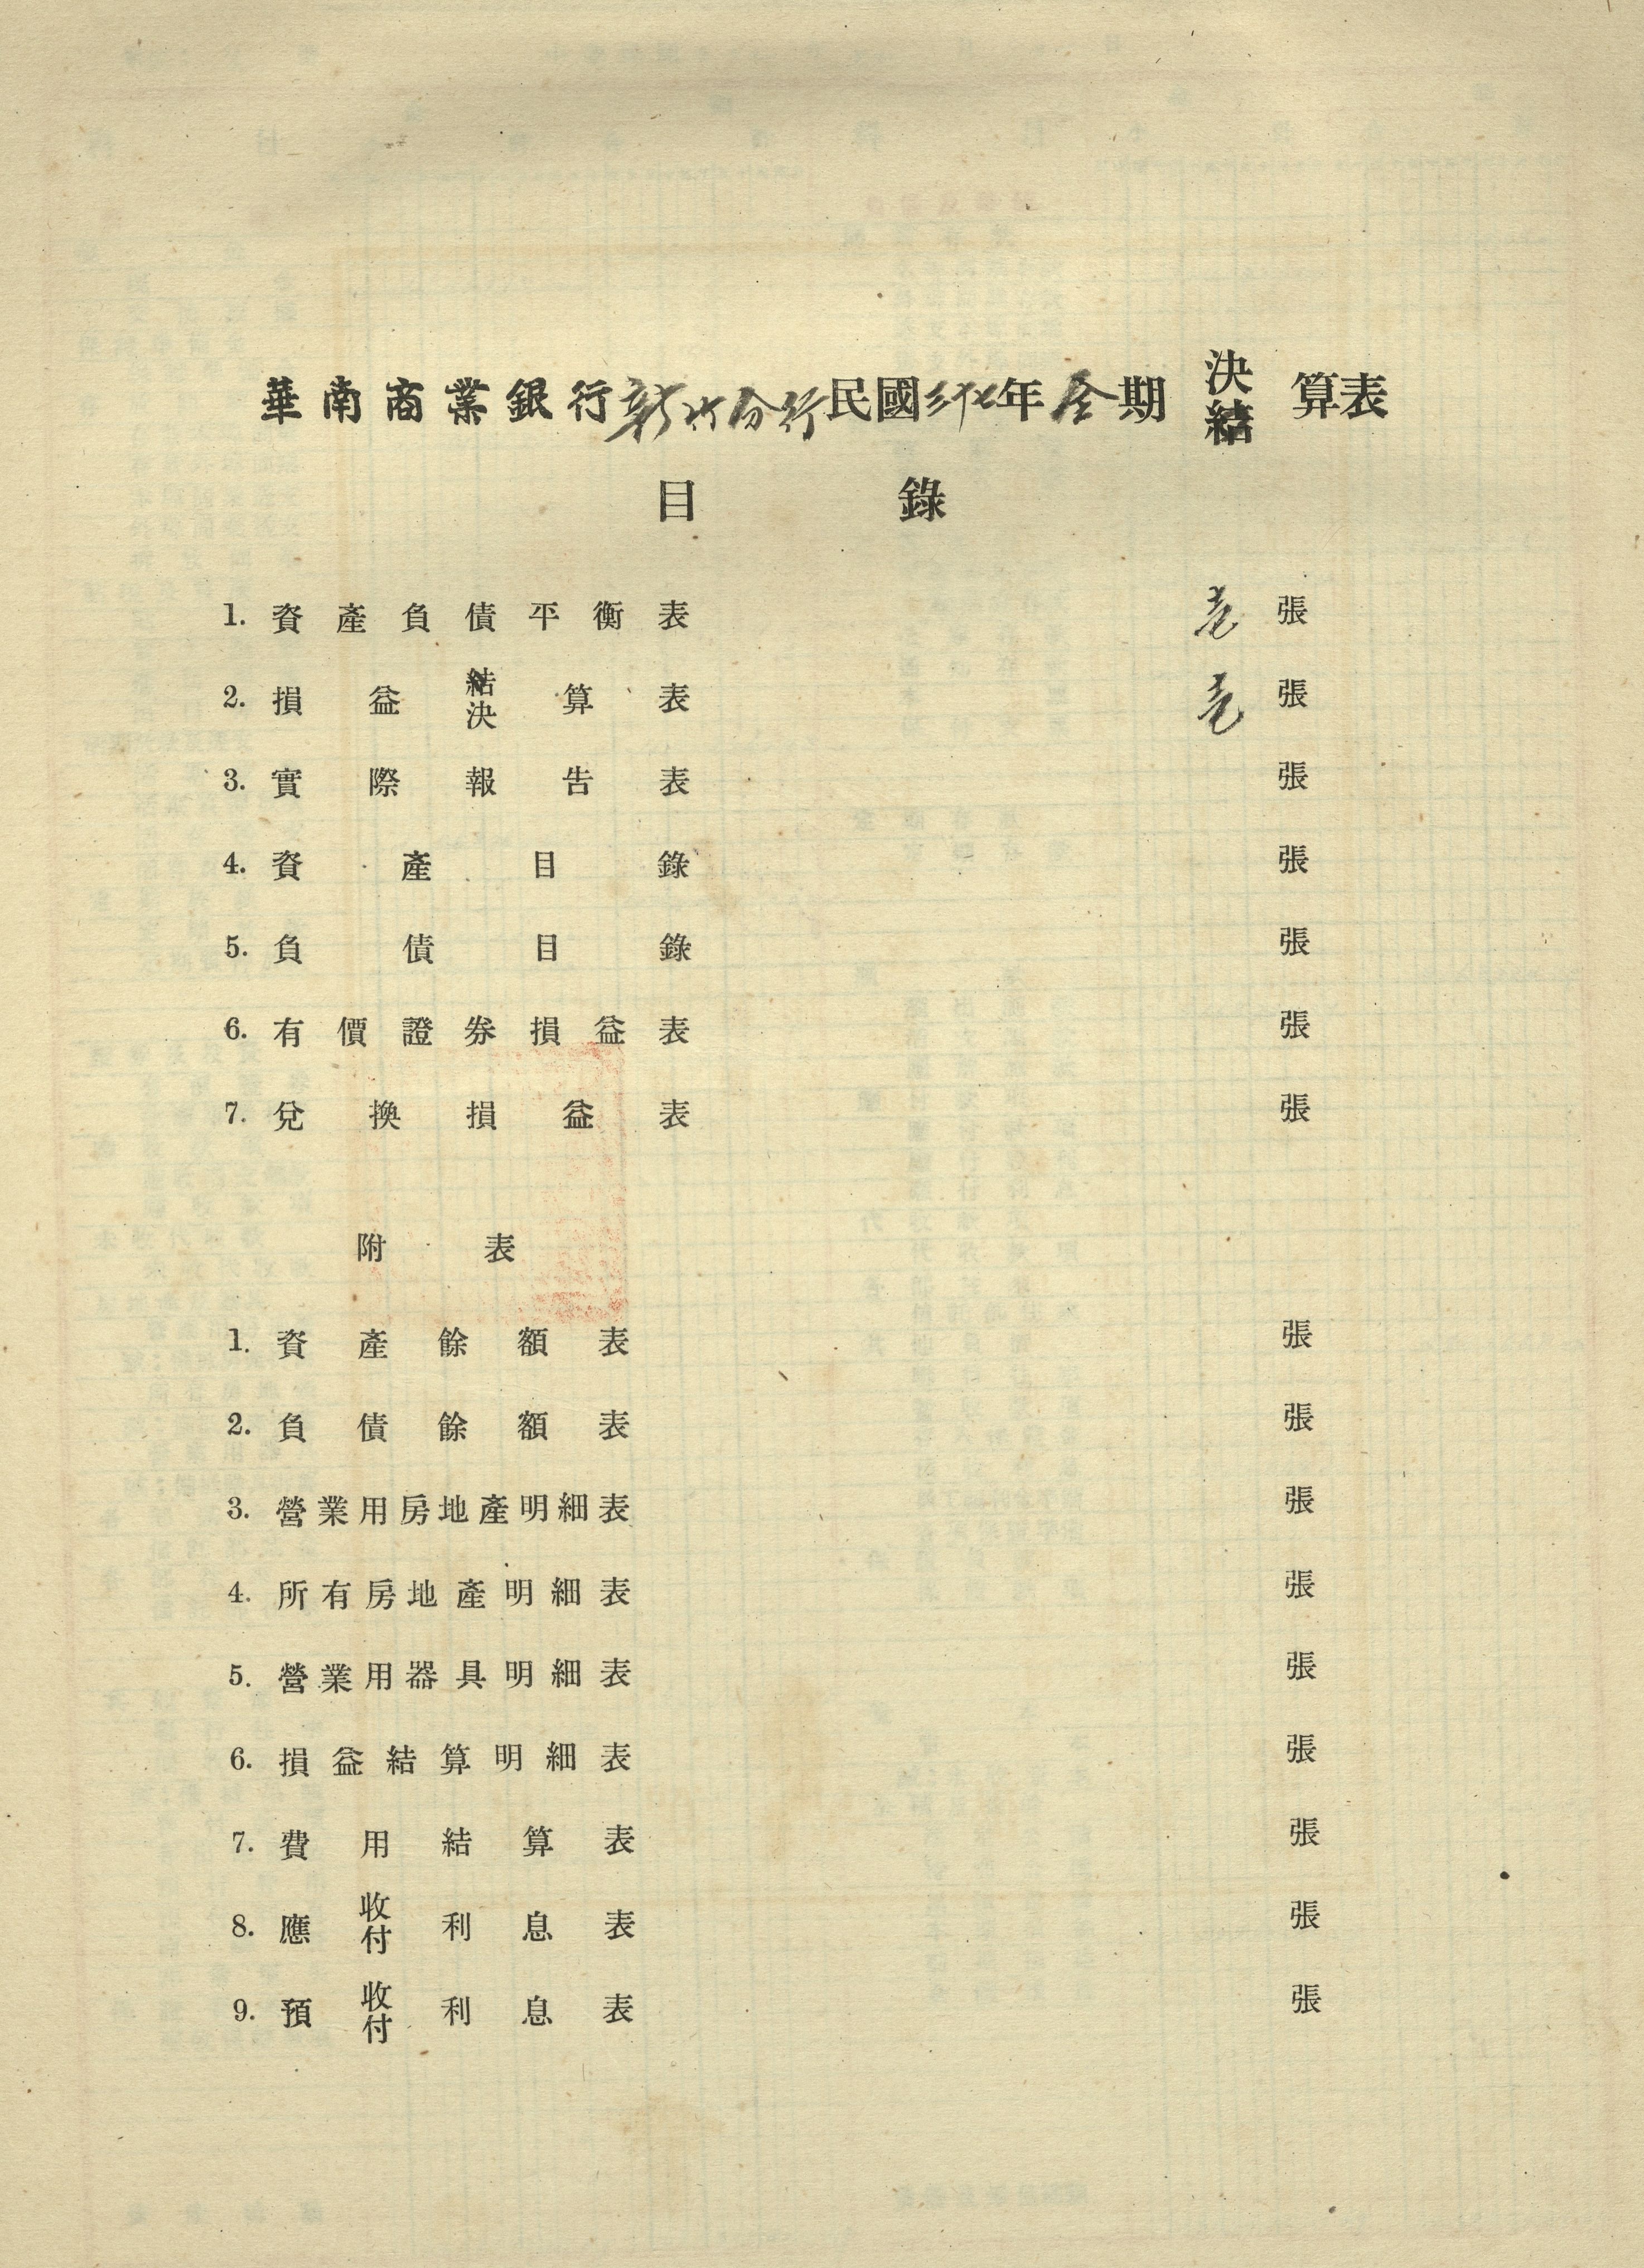 華南商業銀行新竹分行民國三十七年全期決結算表
目錄
1. 資產負債平衡表 壱張
2. 損益結決算表 壱張
3. 實際報告表 張
4. 資產目錄 張
5. 負債目錄 張
6. 有價證券損益表 張
7. 兌換損益表 張
附表
1. 資產餘額表 張
2. 負債餘額表 張
3. 營業用房地產明細表 張
4. 所有房地產明細表 張
5. 營業用器具明細表 張
6. 損益結算明細表 張
7. 費用結算表 張
8. 應收付利息表 張
9. 預收付利息表 張